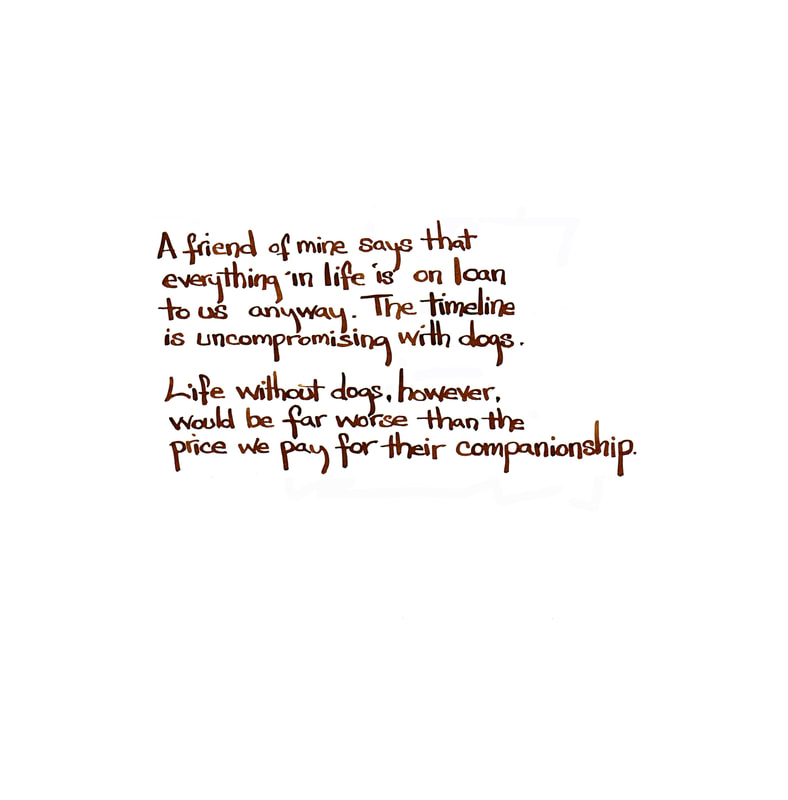 A friend of mine says that
everything in life is on loan
to us anyway. The timeline
is uncompromising with dogs.
Life without dogs, however,
would be far worse than the
price we pay for their companionship.